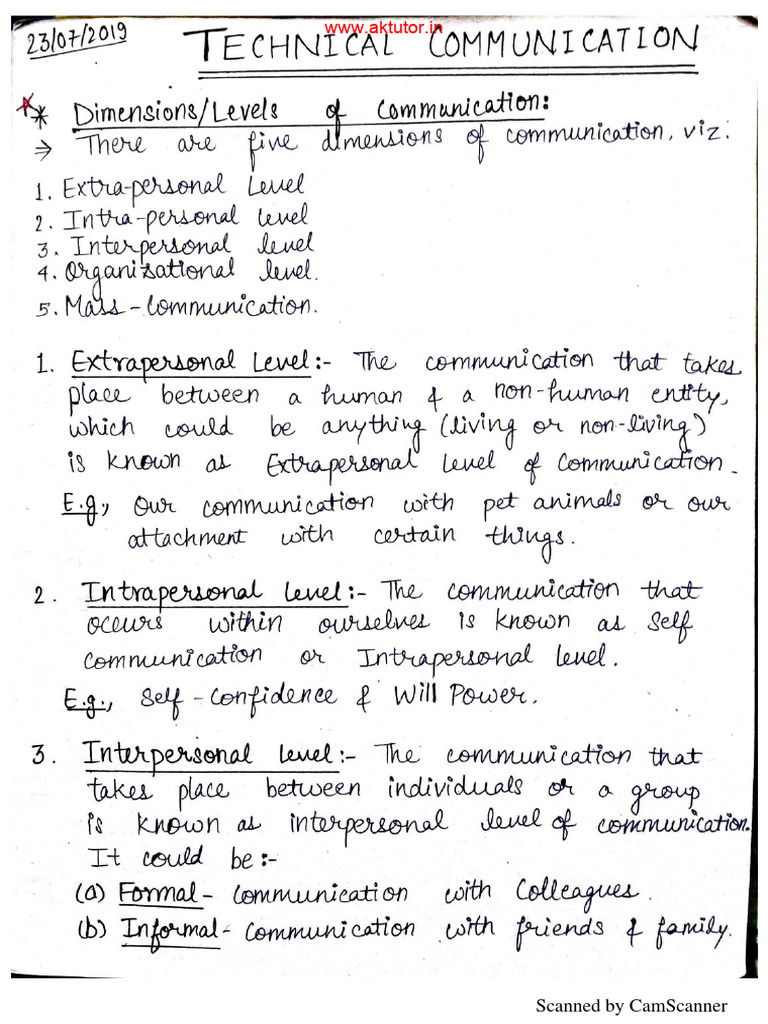 www.aktutor.in
23/07/2019
TECHNICAL COMMUNICATION
* Dimensions/Levels of Communication:
⇒ There are five dimensions of communication, viz:
1. Extra-personal Level
2. Intra-personal level
3. Interpersonal level
4. Organizational level.
5. Mass-Communication.
1. Extrapersonal Level:- The communication that takes
place between a human & a non-human entity,
which could be anything (living or non-living)
is known as Extrapersonal level of Communication.
E.g., Our communication with pet animals or our
attachment with certain things.
2. Intrapersonal level:- The communication that
occurs within ourselves is known as self
communication or Intrapersonal level.
E.g., Self-confidence & Will Power.
3. Interpersonal level:- The communication that
takes place between individuals or a group
is known as interpersonal level of communication.
It could be:-
(a) Formal- Communication with Colleagues.
(b) Informal- Communication with friends & family.
Scanned by CamScanner